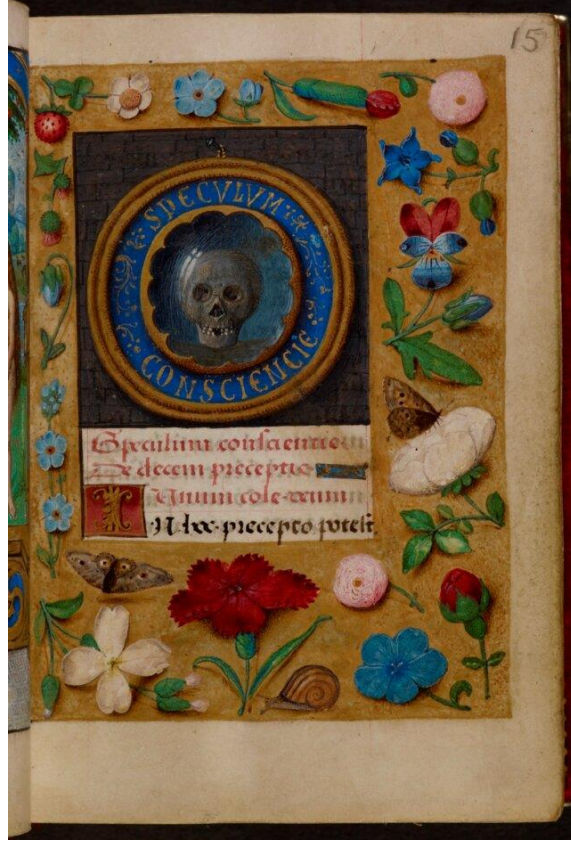 15
SPECULUM
CONSCIENCIE
Speculum conscientie
De decem preceptis
Unum cole deum
IN hoc precepto potest